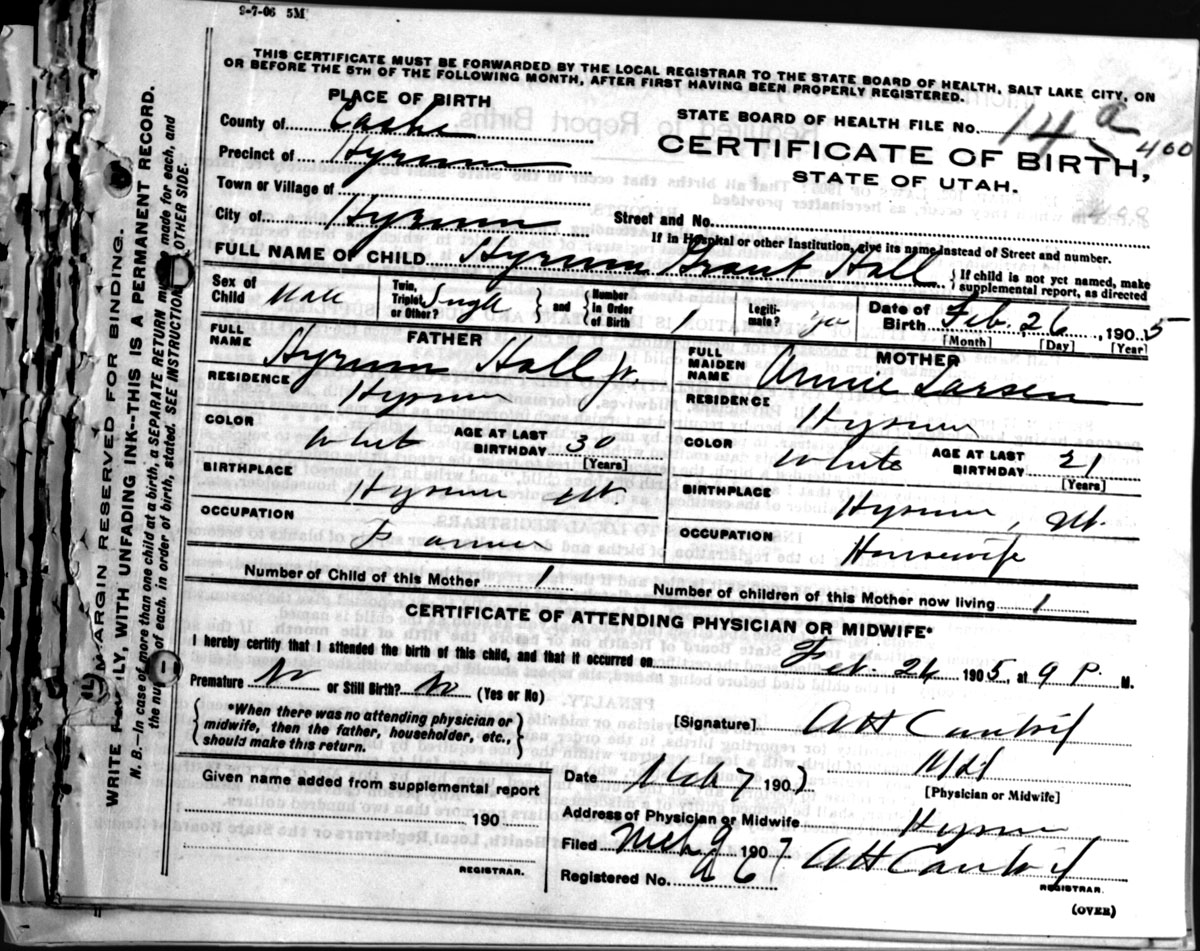 9-7-06 5M
THIS CERTIFICATE MUST BE FORWARDED BY THE LOCAL REGISTRAR TO THE STATE BOARD OF HEALTH, SALT LAKE CITY, ON
OR BEFORE THE 5TH OF THE FOLLOWING MONTH, AFTER FIRST HAVING BEEN PROPERLY REGISTERED.
PLACE OF BIRTH
STATE BOARD OF HEALTH FILE No. 14 a 400
County of Cache
CERTIFICATE OF BIRTH,
Precinct of Hyrum
STATE OF UTAH.
Town or Village of
City of Hyrum Street and No.
If in Hospital or other Institution, give its name instead of Street and number.
FULL NAME OF CHILD Hyrum Grant Hall { If child is not yet named, make supplemental report, as directed
Sex of Child Male Twin, Triplet, or Other? Single } and { Number in Order of Birth 1 Legiti- mate? Yes Date of Birth Feb. 26, 1905
[Month] [Day] [Year]
FATHER MOTHER
FULL NAME Hyrum Hall Jr. FULL MAIDEN NAME Annie Larsen
RESIDENCE Hyrum RESIDENCE Hyrum
COLOR White AGE AT LAST BIRTHDAY 30 [Years] COLOR White AGE AT LAST BIRTHDAY 21 [Years]
BIRTHPLACE Hyrum Ut. BIRTHPLACE Hyrum, Ut.
OCCUPATION Farmer OCCUPATION Housewife
Number of Child of this Mother 1 Number of children of this Mother now living 1
CERTIFICATE OF ATTENDING PHYSICIAN OR MIDWIFE*
I hereby certify that I attended the birth of this child, and that it occurred on Feb. 26 1905, at 9 P. M.
Premature No or Still Birth? No (Yes or No)
*When there was no attending physician or midwife, then the father, householder, etc., should make this return.
[Signature] A H
[Physician or Midwife]
Given name added from supplemental report
190
REGISTRAR.
Date Mch 7 190
Address of Physician or Midwife Hyrum
Filed Mch 9 1907 A H
Registered No.
REGISTRAR.
(OVER)
MARGIN RESERVED FOR BINDING.
WRITE PLAINLY, WITH UNFADING INK--THIS IS A PERMANENT RECORD.
N. B.--In case of more than one child at a birth, a SEPARATE RETURN must be made for each, and
the number of each, in order of birth, stated. SEE INSTRUCTIONS OTHER SIDE.